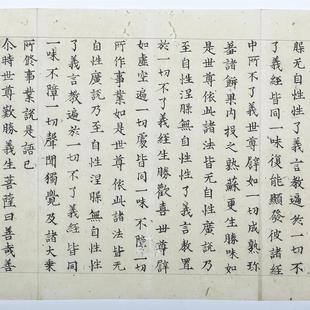 槃无自性性了義言教遍於一切不
了義經皆同一味復能顯發彼諸經
中所不了義世尊譬如一切成熟珎
羞諸餅果內投之熟蘇更生勝味如
是世尊依此諸法皆无自性廣說乃
至自性涅槃無自性性了義言教置
於一切不了義經生勝歡喜世尊譬
如虛空遍一切處皆同一味不障一切
所作事業如是世尊依此諸法皆无
自性廣說乃至自性涅槃無自性性
了義言教遍於一切不了義經皆同
一味不障一切聲聞獨覺及諸大乘
所修事業說是語已
尒時世尊歎勝義生菩薩曰善哉善